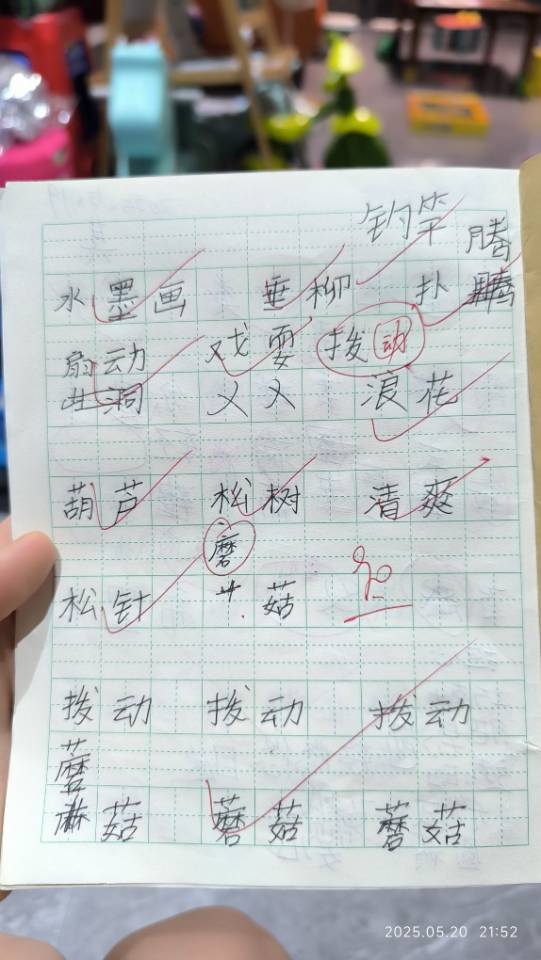 钓竿
水墨画 垂柳 扑腾
扇动 戏耍 拨动
山洞 义义 浪花
葫芦 松树 清爽
磨
松针 艹菇 90
拨动 拨动 拨动
蘑
菇 蘑菇 蘑菇
2025.05.20 21:52